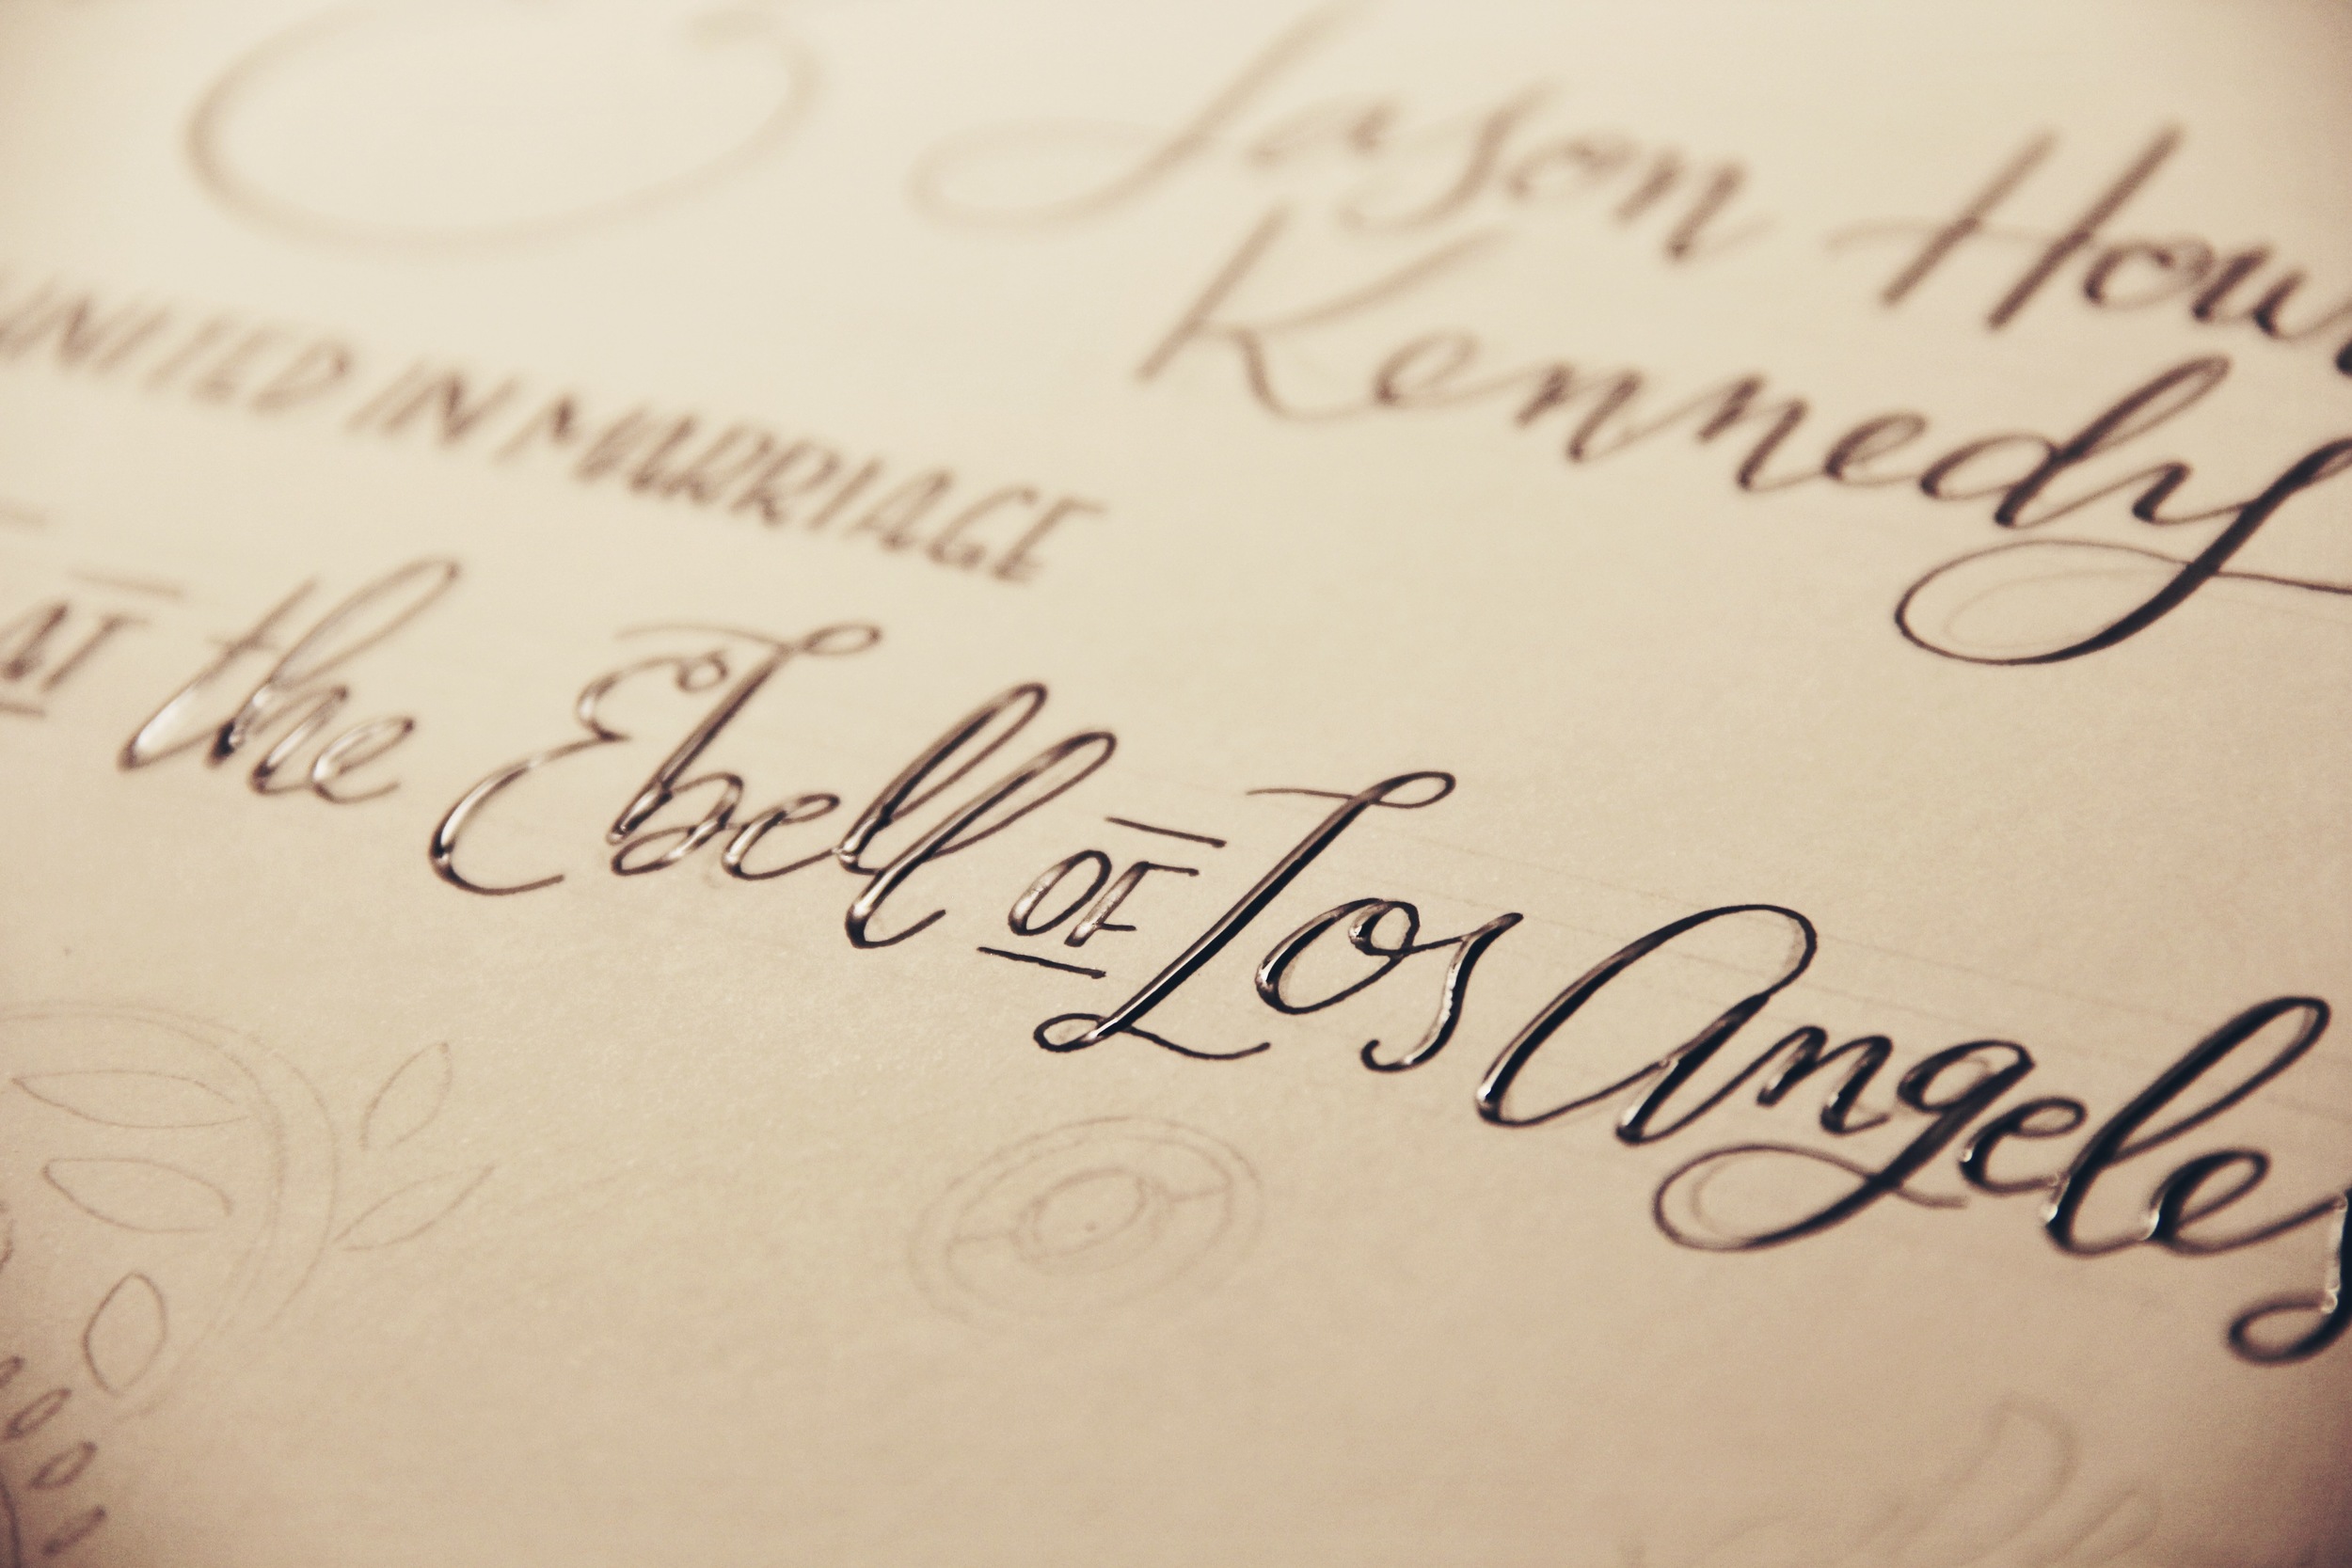 Jason How
Kennedy
UNITED IN MARRIAGE
AT the Ebell OF Los Angeles